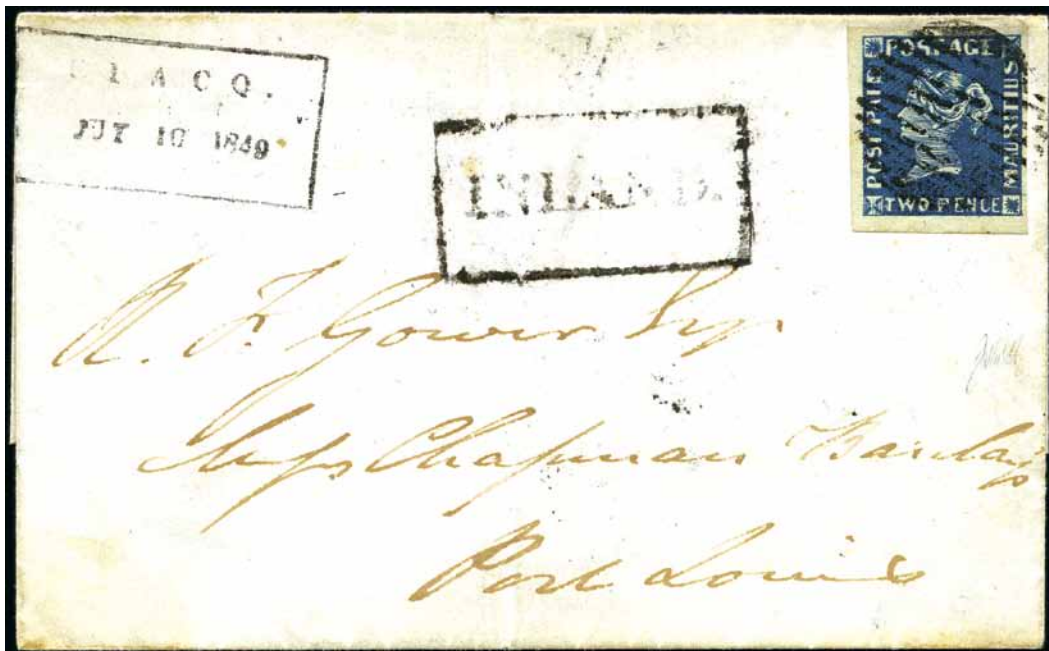 LACQ.
JUY 10 1849
INLAND.
POSTAGE
POST PAID
MAURITIUS
TWO PENCE
Gower Esqr
Chapman Barclay
Port Louis